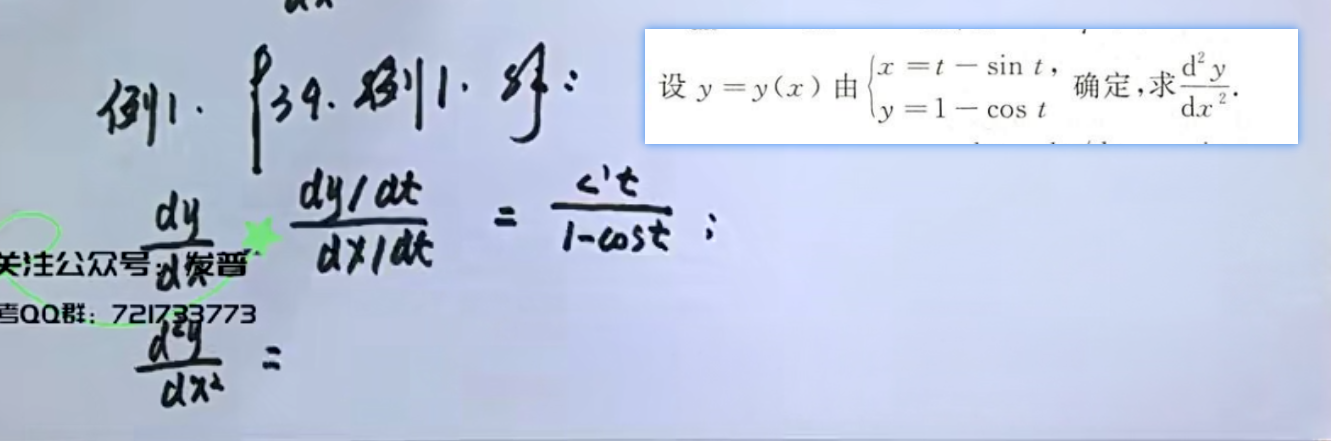 dx
例1. {39. 例1. 解}:
设 y = y(x) 由 { x = t − sin t, y = 1 − cos t 确定,求 d²y/dx².
dy/dx dy/dt / dx/dt = t / 1-cost ;
关注公众号:
普
考QQ群: 721733773
d²y/dx² =